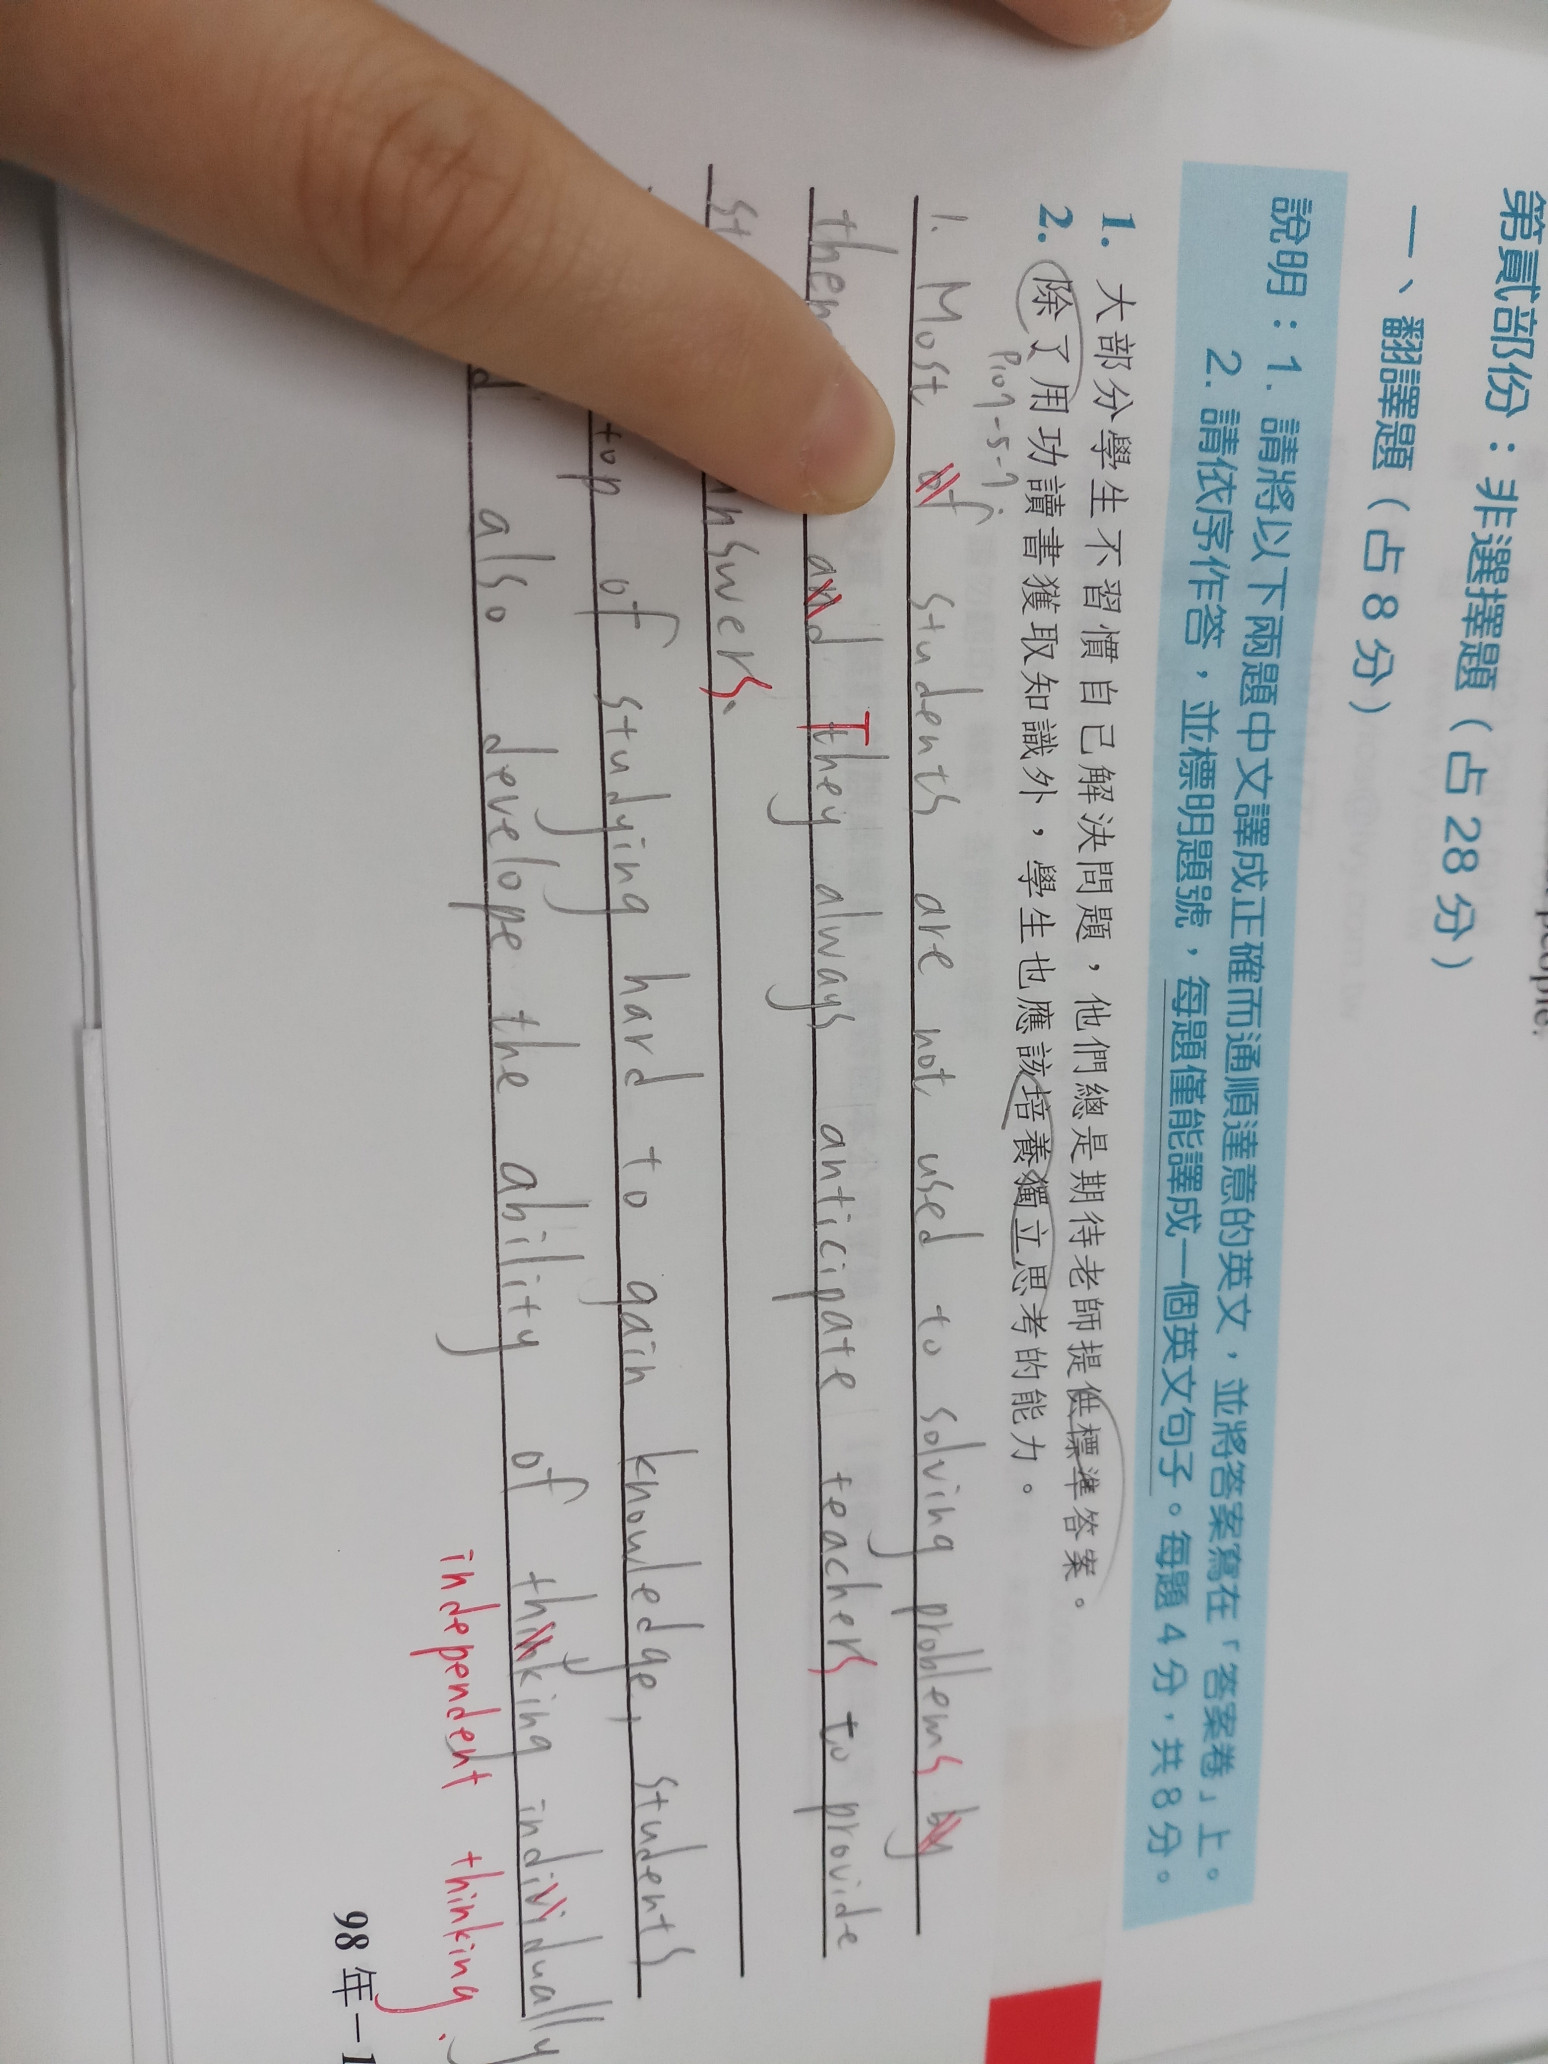 第貳部份：非選擇題（占 28 分）
一、翻譯題（占 8 分）
說明：1. 請將以下兩題中文譯成正確而通順達意的英文，並將答案寫在「答案卷」上。
2. 請依序作答，並標明題號，每題僅能譯成一個英文句子。每題 4 分，共 8 分。
1. 大部分學生不習慣自己解決問題，他們總是期待老師提供標準答案。
2. 除了用功讀書獲取知識外，學生也應該培養獨立思考的能力。
P107-5-7
1. Most of students are not used to solving problems by
and They always anticipate teachers to provide
answers.
top of studying hard to gain knowledge, students
also develope the ability of thinking individually
independent thinking.
98 年－1